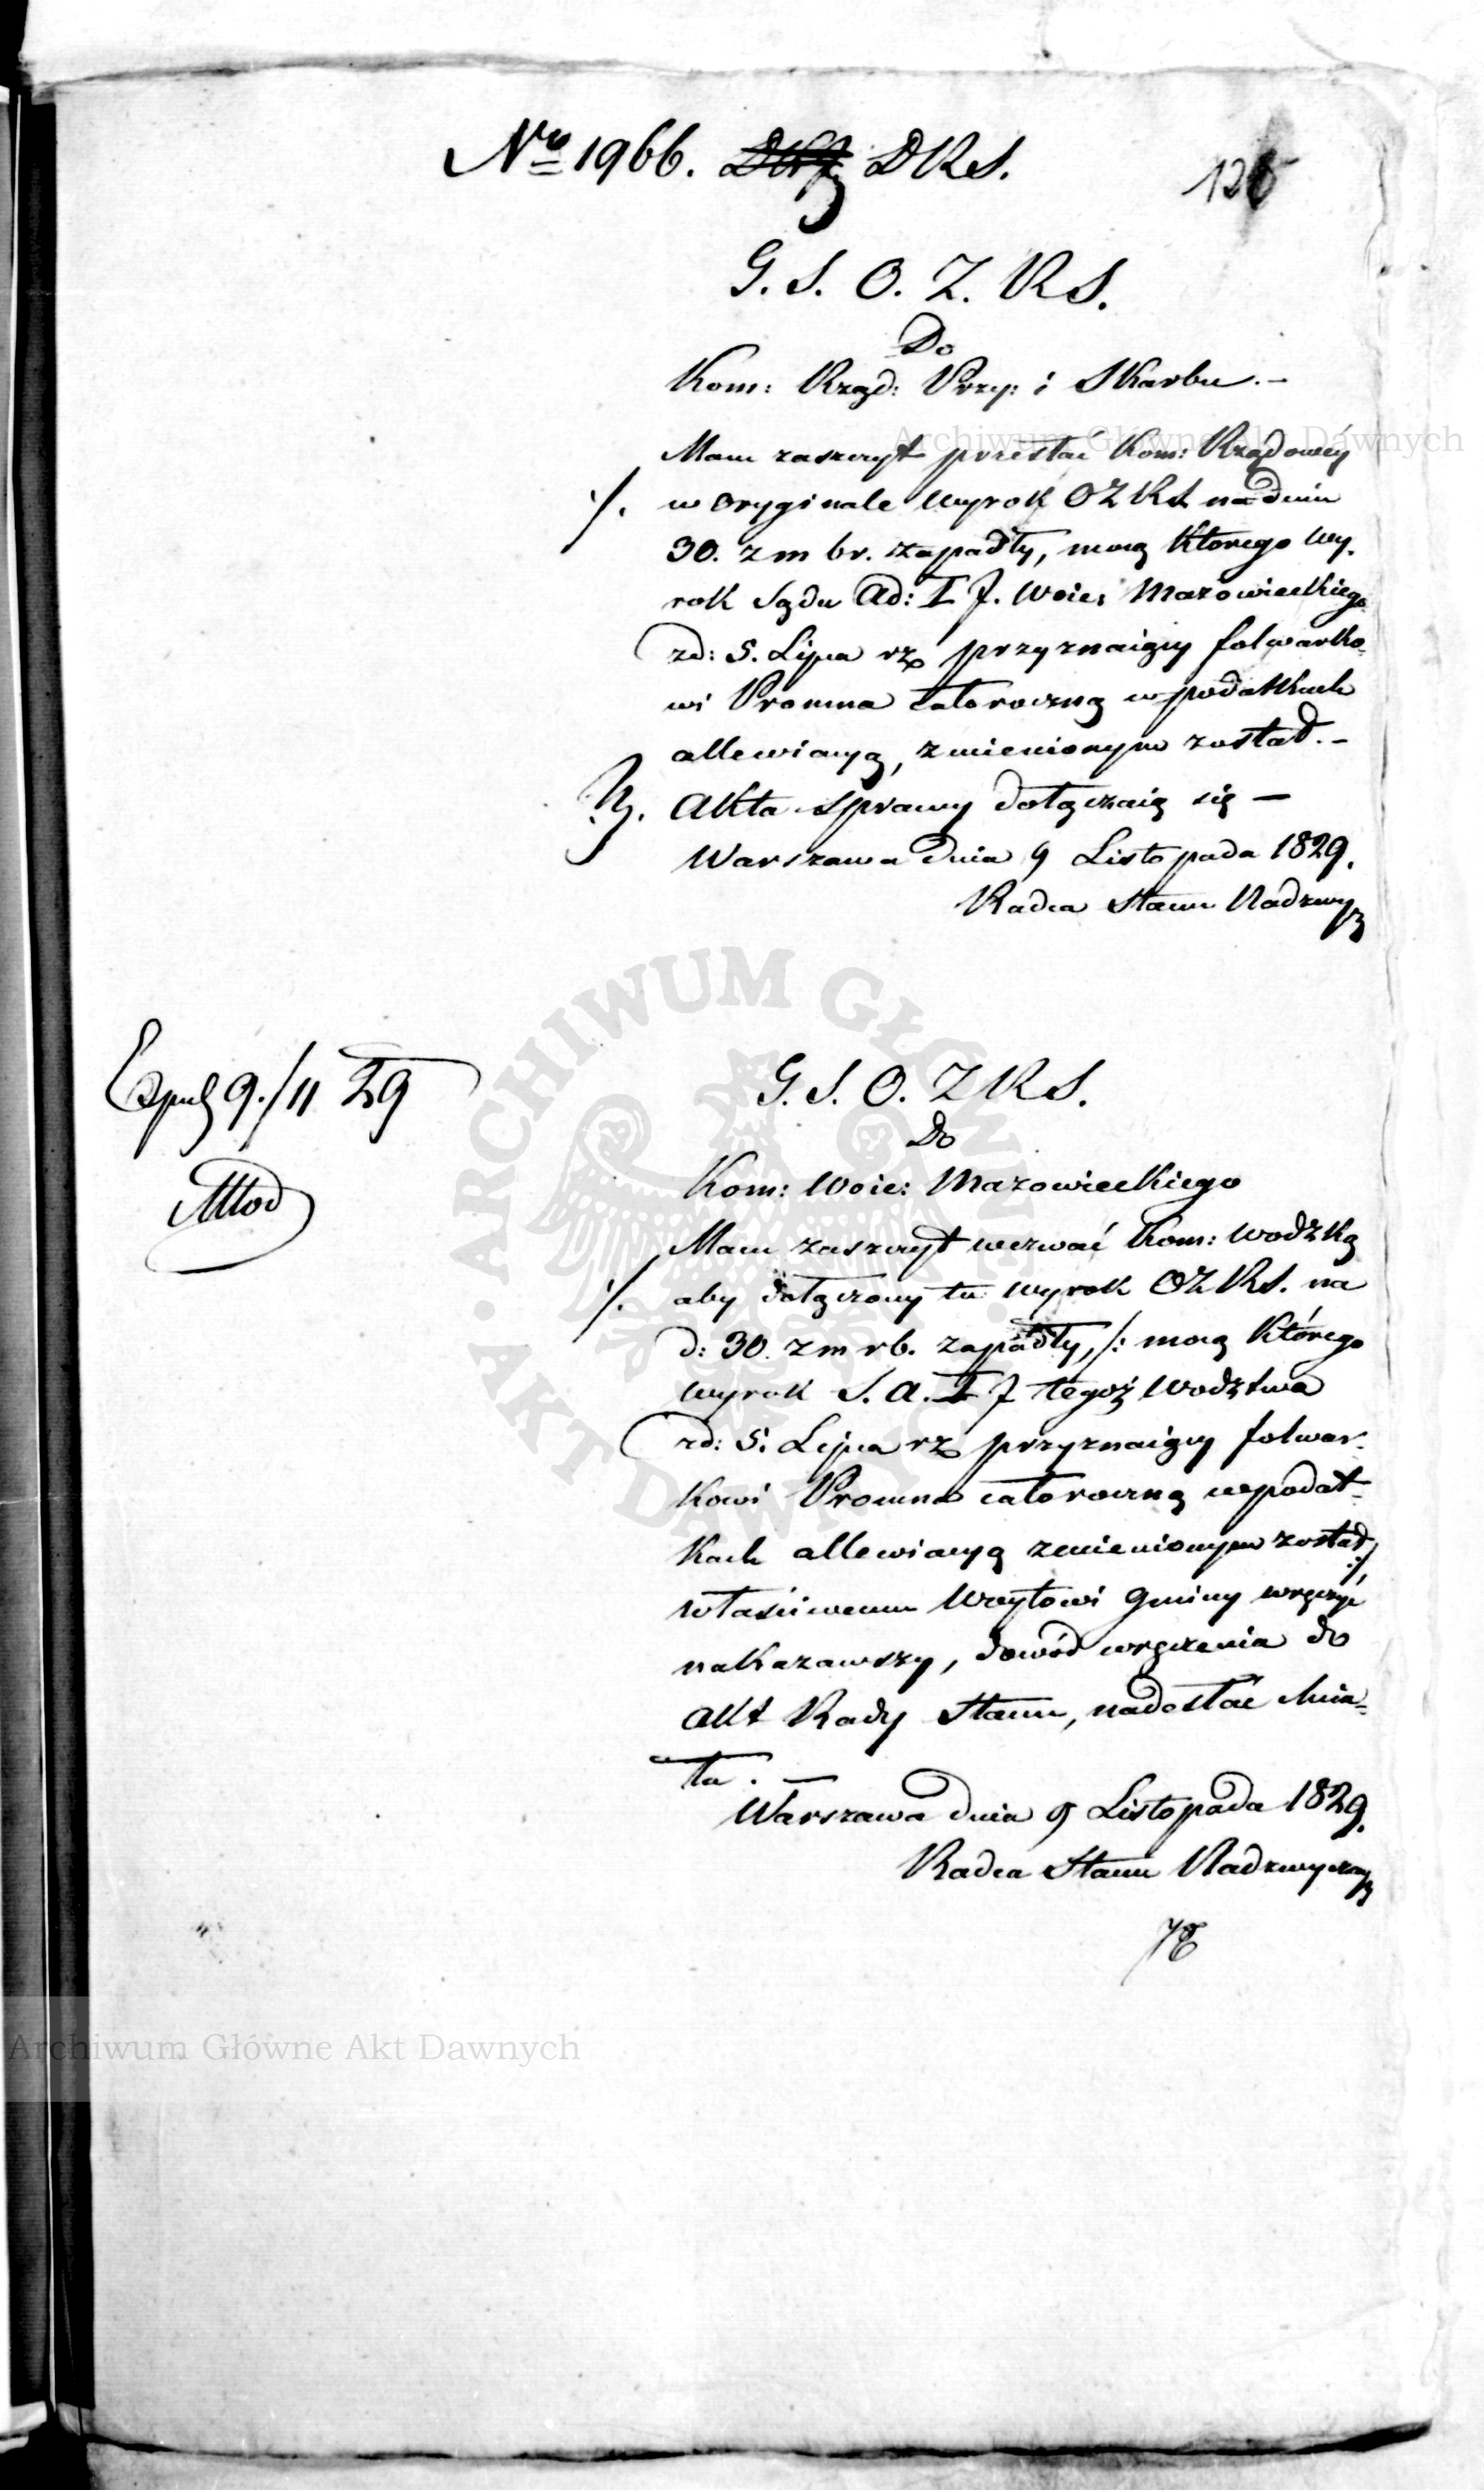 No 1966. DRS.
126
G. S. O. Z. RS.
Do
Kom: Rząd: Przy: i Skarbu.-
Archiwum Główne Akt Dawnych
Mam zaszczyt przesłać Kom: Rządowéy
./. w oryginale wyrok OZRS na dniu
30. z m br. zapadły, mocą którego wy-
rok Sądu Ad: I J. Woje: Mazowieckiego
zd: 5. Lipca rz przyznaiący folwarko-
wi Promna całoroczną w podatkach
allewiacyą, zmienionym został.-
Akta sprawy dołączaią się —
Warszawa dnia 9 Listopada 1829.
Radca Stanu Nadzwy
Exped 9./11 29
G. S. O. Z RS.
Do
Kom: Woie: Mazowieckiego
Mam zaszczyt wezwać Kom: Wodzką
./. aby dołączony tu wyrok OZRS. na
d: 30. z m rb. zapadły, /: mocą którego
wyrok S. A. I J tegoż Wodztwa
zd: 5. Lipca rz przyznaiący folwar-
kowi Promna całoroczną w podat-
kach allewiacyą zmienionym został :/
właściwemu Woytowi gminy wręczyć
nakazawszy, dowód wręczenia do
Akt Rady Stanu, nadesłać chcia-
ła. —
Warszawa dnia 9 Listopada 1829.
Radca Stanu Nadzwyczay
ARCHIWUM GŁÓWNE AKT DAWNYCH
Archiwum Główne Akt Dawnych